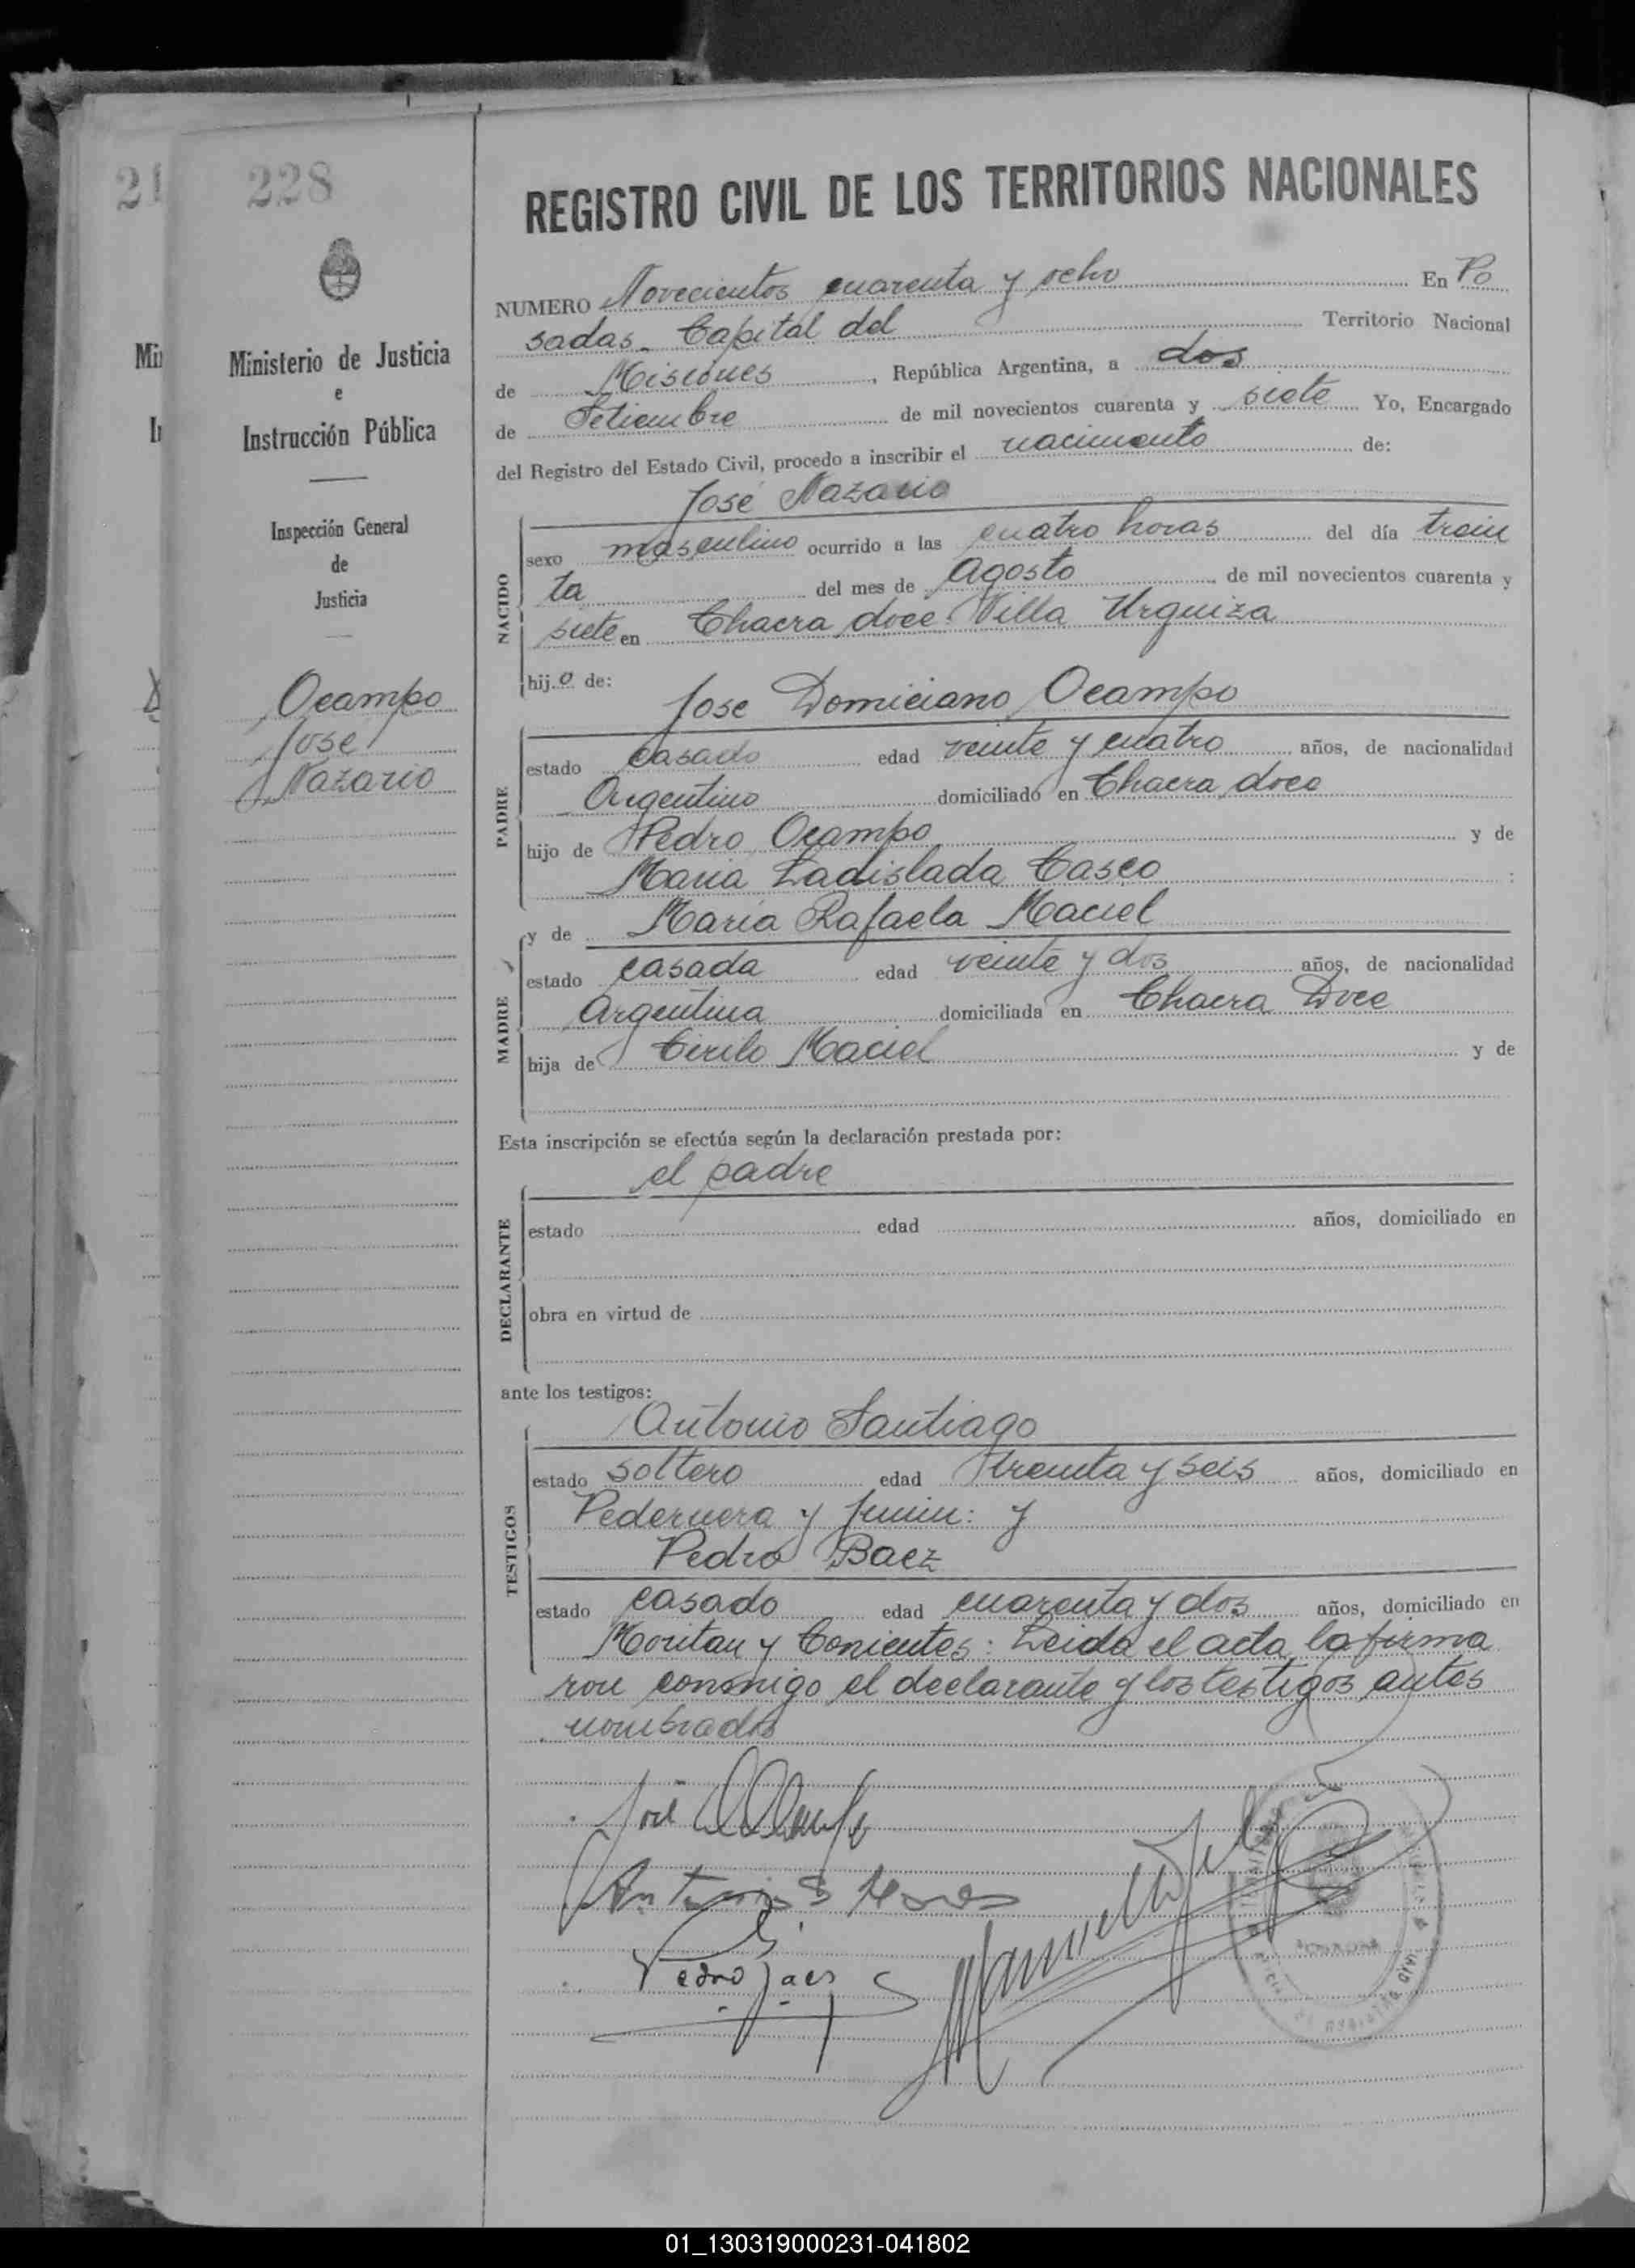 21
228
Mi
I
Ministerio de Justicia
e
Instrucción Pública
Inspección General
de
Justicia
Ocampo
Jose
Nazario
REGISTRO CIVIL DE LOS TERRITORIOS NACIONALES
NUMERO Novecientos cuarenta y ocho En Po
sadas. Capital del Territorio Nacional
de Misiones, República Argentina, a dos
de Setiembre de mil novecientos cuarenta y siete Yo, Encargado
del Registro del Estado Civil, procedo a inscribir el nacimiento de:
José Nazario
NACIDO
sexo masculino ocurrido a las cuatro horas del día trein
ta del mes de Agosto de mil novecientos cuarenta y
siete en Chacra doce Villa Urquiza
hijo de:
Jose Domiciano Ocampo
PADRE
estado casado edad veinte y cuatro años, de nacionalidad
Argentino domiciliado en Chacra doce
hijo de Pedro Ocampo y de
Maria Ladislada Casco
y de Maria Rafaela Maciel
MADRE
estado casada edad veinte y dos años, de nacionalidad
Argentina domiciliada en Chacra Doce
hija de Cirilo Maciel y de
Esta inscripción se efectúa según la declaración prestada por:
el padre
DECLARANTE
estado edad años, domiciliado en
obra en virtud de
ante los testigos:
Antonio Santiago
TESTIGOS
estado soltero edad treinta y seis años, domiciliado en
Pedernera y Junin: y
Pedro Baez
estado casado edad cuarenta y dos años, domiciliado en
y : Leida el acta, la firma
ron conmigo el declarante y los testigos antes
nombrados
José
Antonio S
Pedro Baes
Manuel
01_130319000231-041802